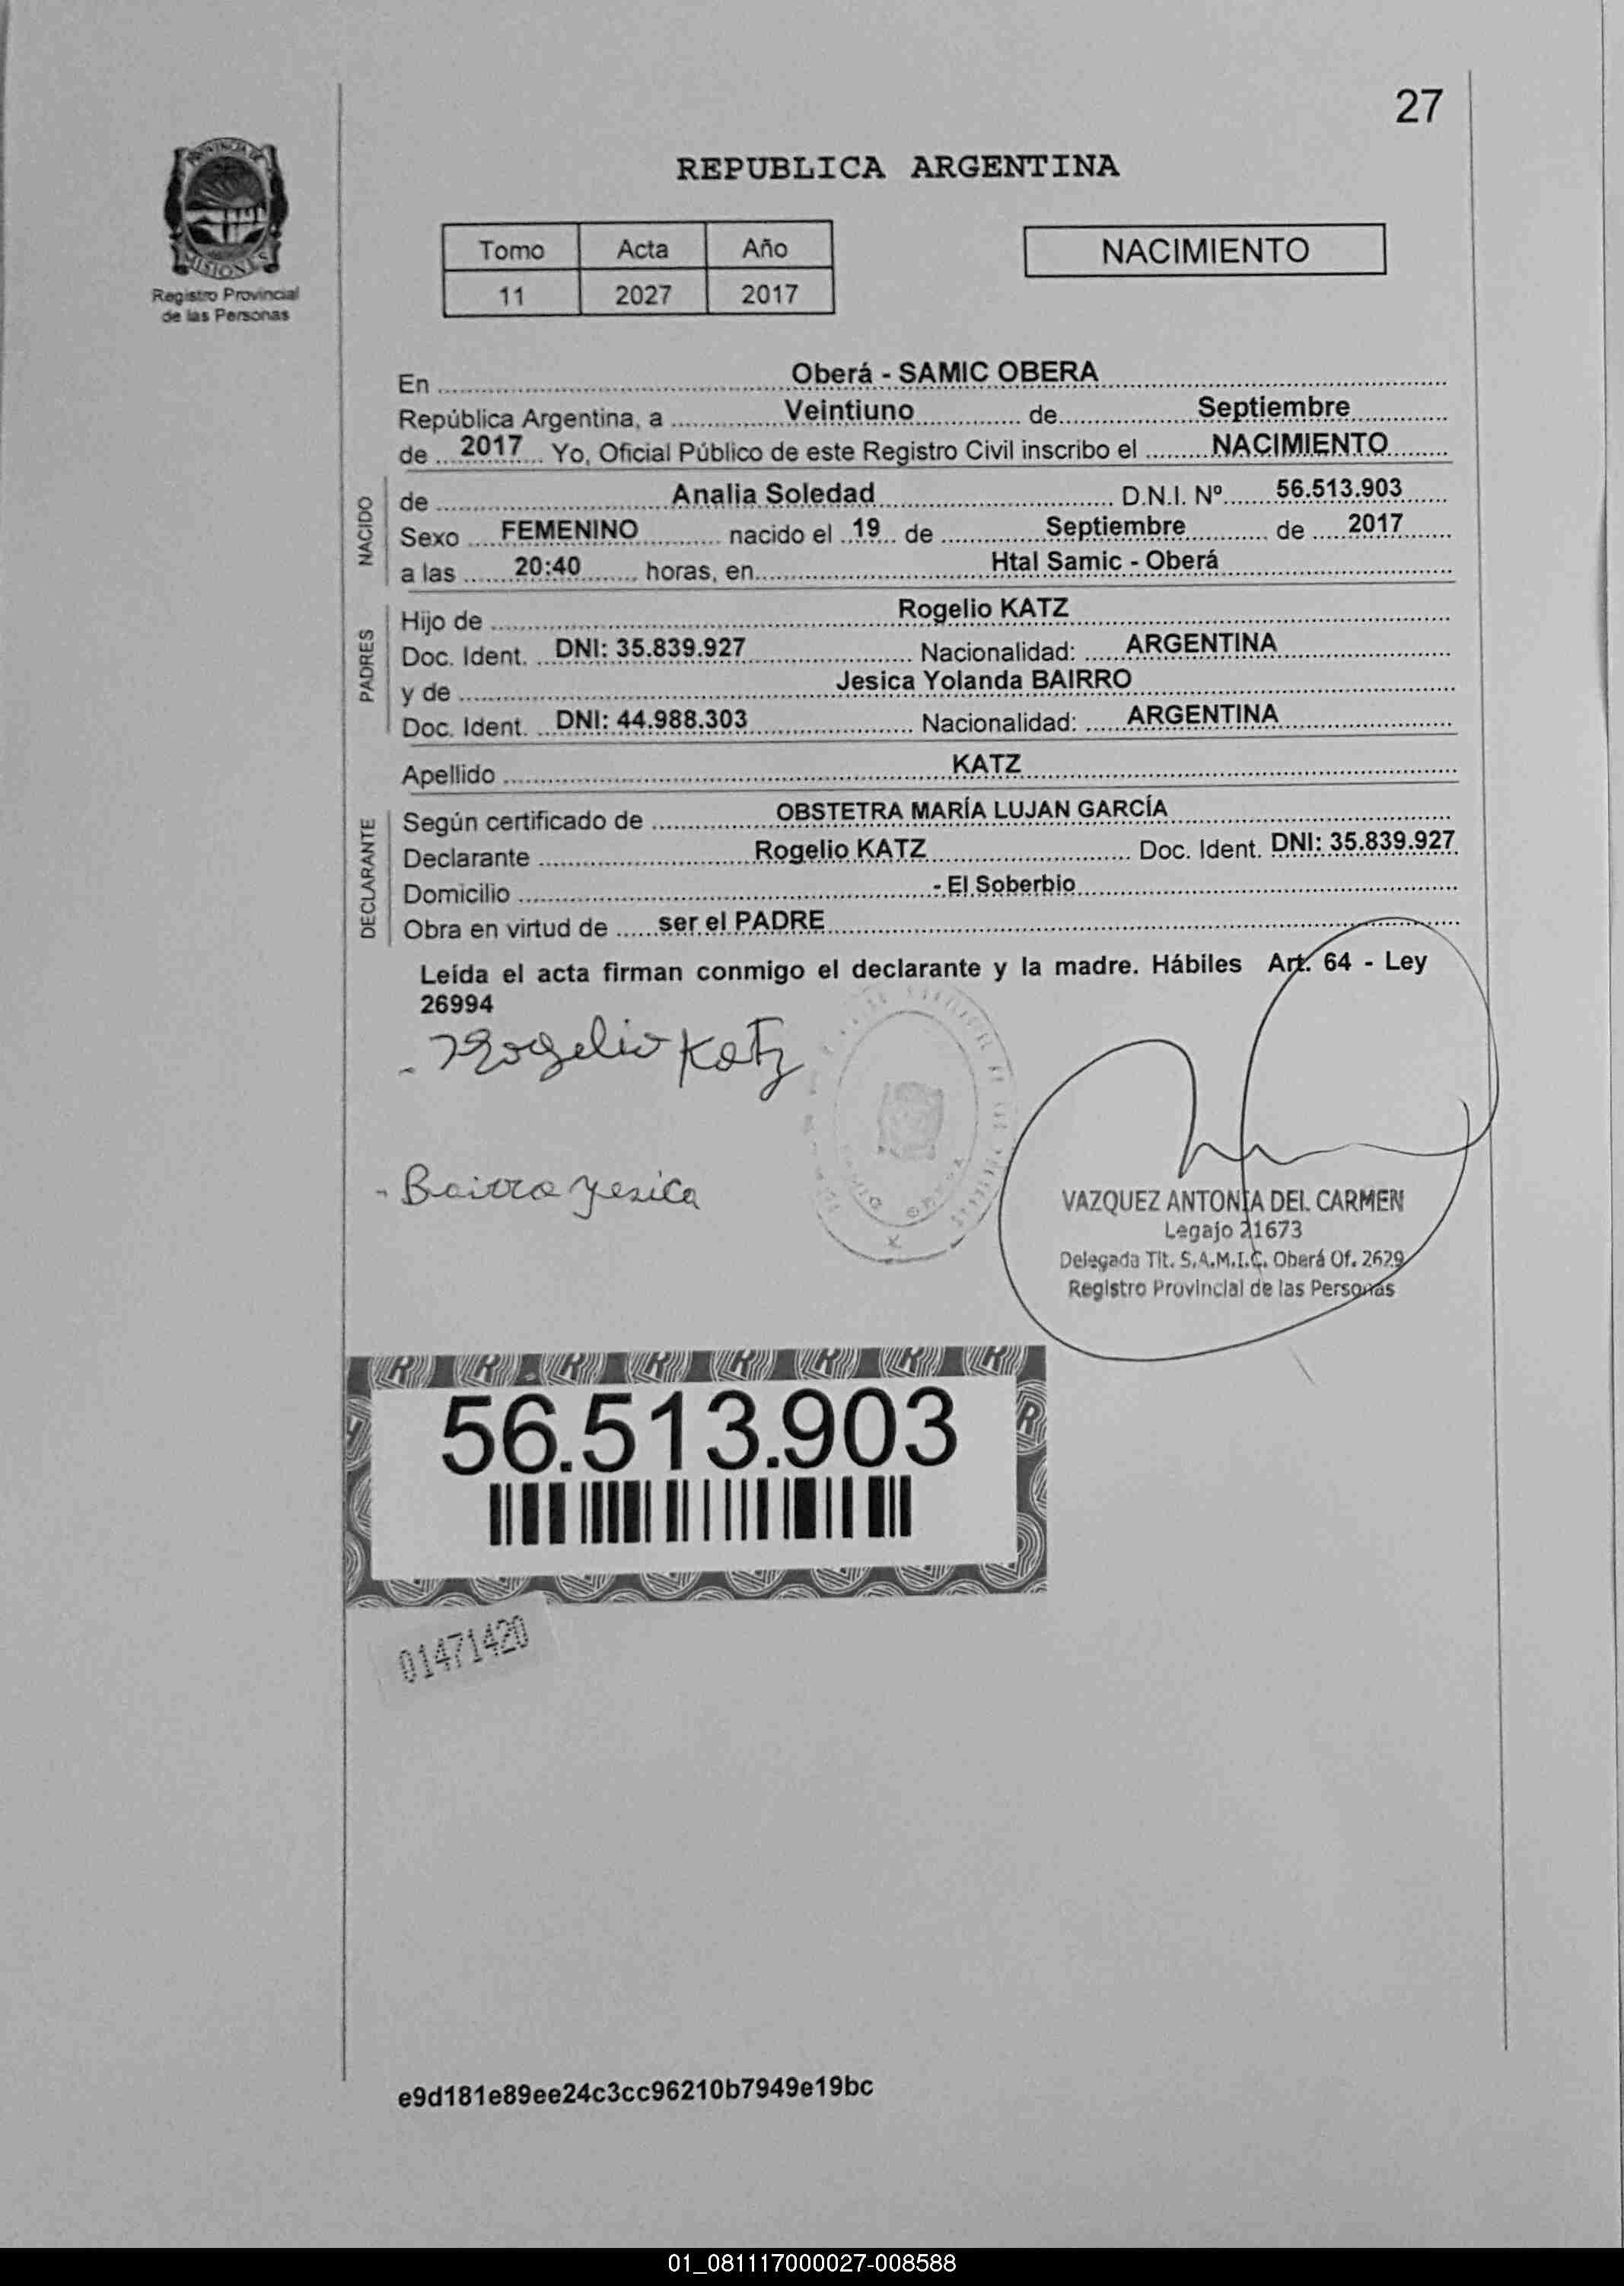 27
PROVINCIA DE
MISIONES
Registro Provincial
de las Personas
REPUBLICA ARGENTINA
Tomo Acta Año
11 2027 2017
NACIMIENTO
En Oberá - SAMIC OBERA
República Argentina, a Veintiuno de Septiembre
de 2017 Yo, Oficial Público de este Registro Civil inscribo el NACIMIENTO
NACIDO
de Analia Soledad D.N.I. Nº 56.513.903
Sexo FEMENINO nacido el 19 de Septiembre de 2017
a las 20:40 horas, en Htal Samic - Oberá
PADRES
Hijo de Rogelio KATZ
Doc. Ident. DNI: 35.839.927 Nacionalidad: ARGENTINA
y de Jesica Yolanda BAIRRO
Doc. Ident. DNI: 44.988.303 Nacionalidad: ARGENTINA
Apellido KATZ
DECLARANTE
Según certificado de OBSTETRA MARÍA LUJAN GARCÍA
Declarante Rogelio KATZ Doc. Ident. DNI: 35.839.927
Domicilio - El Soberbio
Obra en virtud de ser el PADRE
Leída el acta firman conmigo el declarante y la madre. Hábiles Art. 64 - Ley
26994
- Rogelio Katz
- Bairro Yesica
VAZQUEZ ANTONIA DEL CARMEN
Legajo 21673
Delegada Tit. S.A.M.I.C. Oberá Of. 2629
Registro Provincial de las Personas
56.513.903
01471420
e9d181e89ee24c3cc96210b7949e19bc
01_081117000027-008588